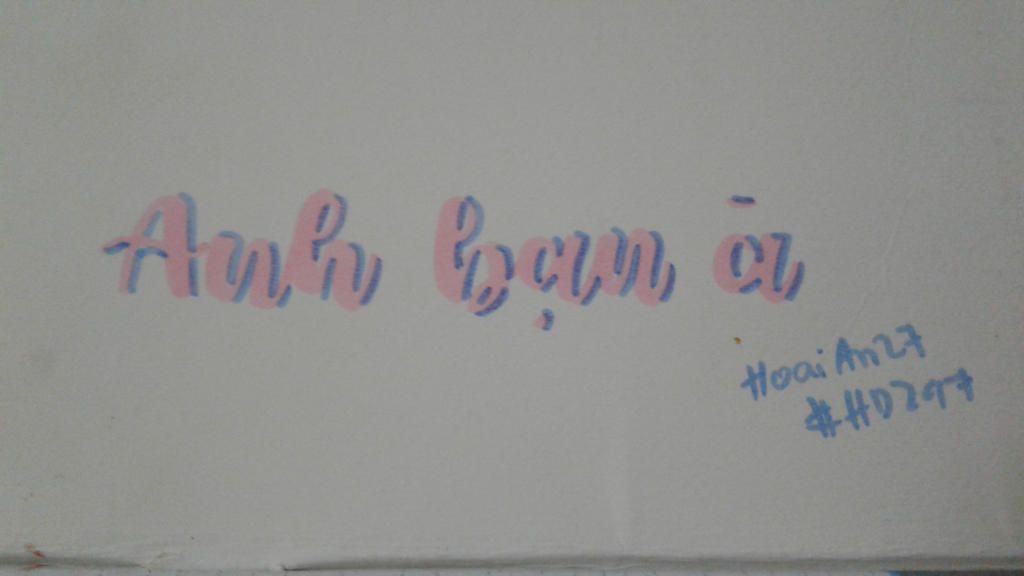 Anh bạn à
HoaiAn27
#HD297